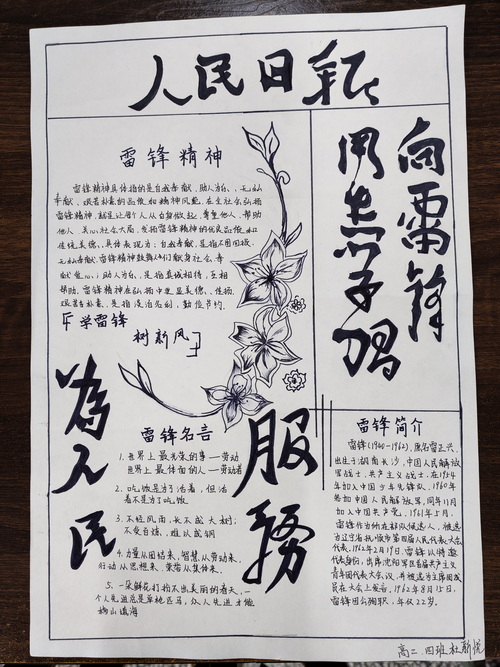 人民日报
向雷锋
同志学习
雷锋精神
雷锋精神具体指的是自我奉献、助人为乐、无私
奉献、艰苦朴素的品德和精神风貌。在全社会弘扬
雷锋精神，就是让每个人从自身做起，尊重他人，帮助
他人，关心社会大局，发扬雷锋精神的优良品质和
传统美德。具体表现为：自我奉献，是指不图回报，
无私奉献。雷锋精神鼓舞人们献身社会，奉
献爱心；助人为乐，是指真诚相待，互相
帮助。雷锋精神在弘扬中更显美德、佳扬
艰苦朴素，是指谦洁克制，勤俭节约。
『学雷锋
树新风』
为人民
服务
雷锋名言
1. 世界上最光荣的事——劳动
世界上最体面的人——劳动者
2. 吃饭是为了活着，但活
着不是为了吃饭
3. 不经风雨，长不成大树；
不受百炼，难以成钢
4. 力量从团结来，智慧从劳动来，
行动从思想来，荣誉从集体来。
5. 一朵鲜花打扮不出美丽的春天，一
个人先进总是单枪匹马，众人先进才能
移山填海
雷锋简介
雷锋(1940-1962)，原名雷正兴，
出生于湖南长沙，中国人民解放
军战士，共产主义战士，在1954
年加入中国少年先锋队，1960年
参加中国人民解放军，同年11月
加入中国共产党。1961年5月，
雷锋作为所在部队候选人，被选
为辽宁省抚顺市第四届人民代表大会
代表。1962年2月19日，雷锋以特邀
代表身份，出席沈阳军区首届共产主义
青年团代表大会议，并被选为主席团成
员在大会上发言。1962年8月15日，
雷锋因公殉职，年仅22岁。
高二.四班 杜新悦